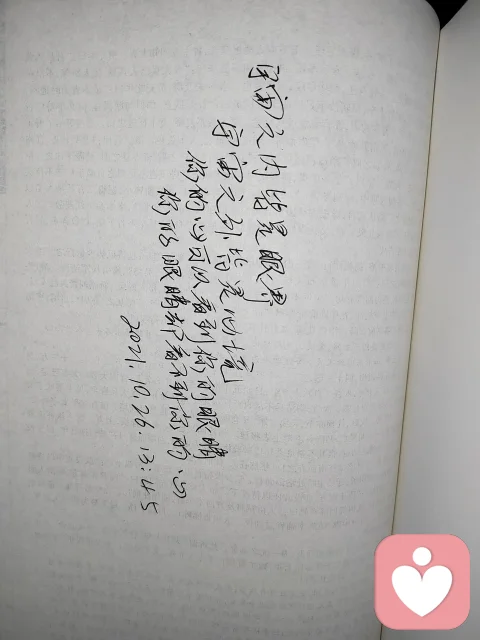 宇宙之内皆是眼界
宇宙之外皆是心境
你的心可以看到你的眼睛
你的眼睛却看不到你的心
2021.10.26.13:45